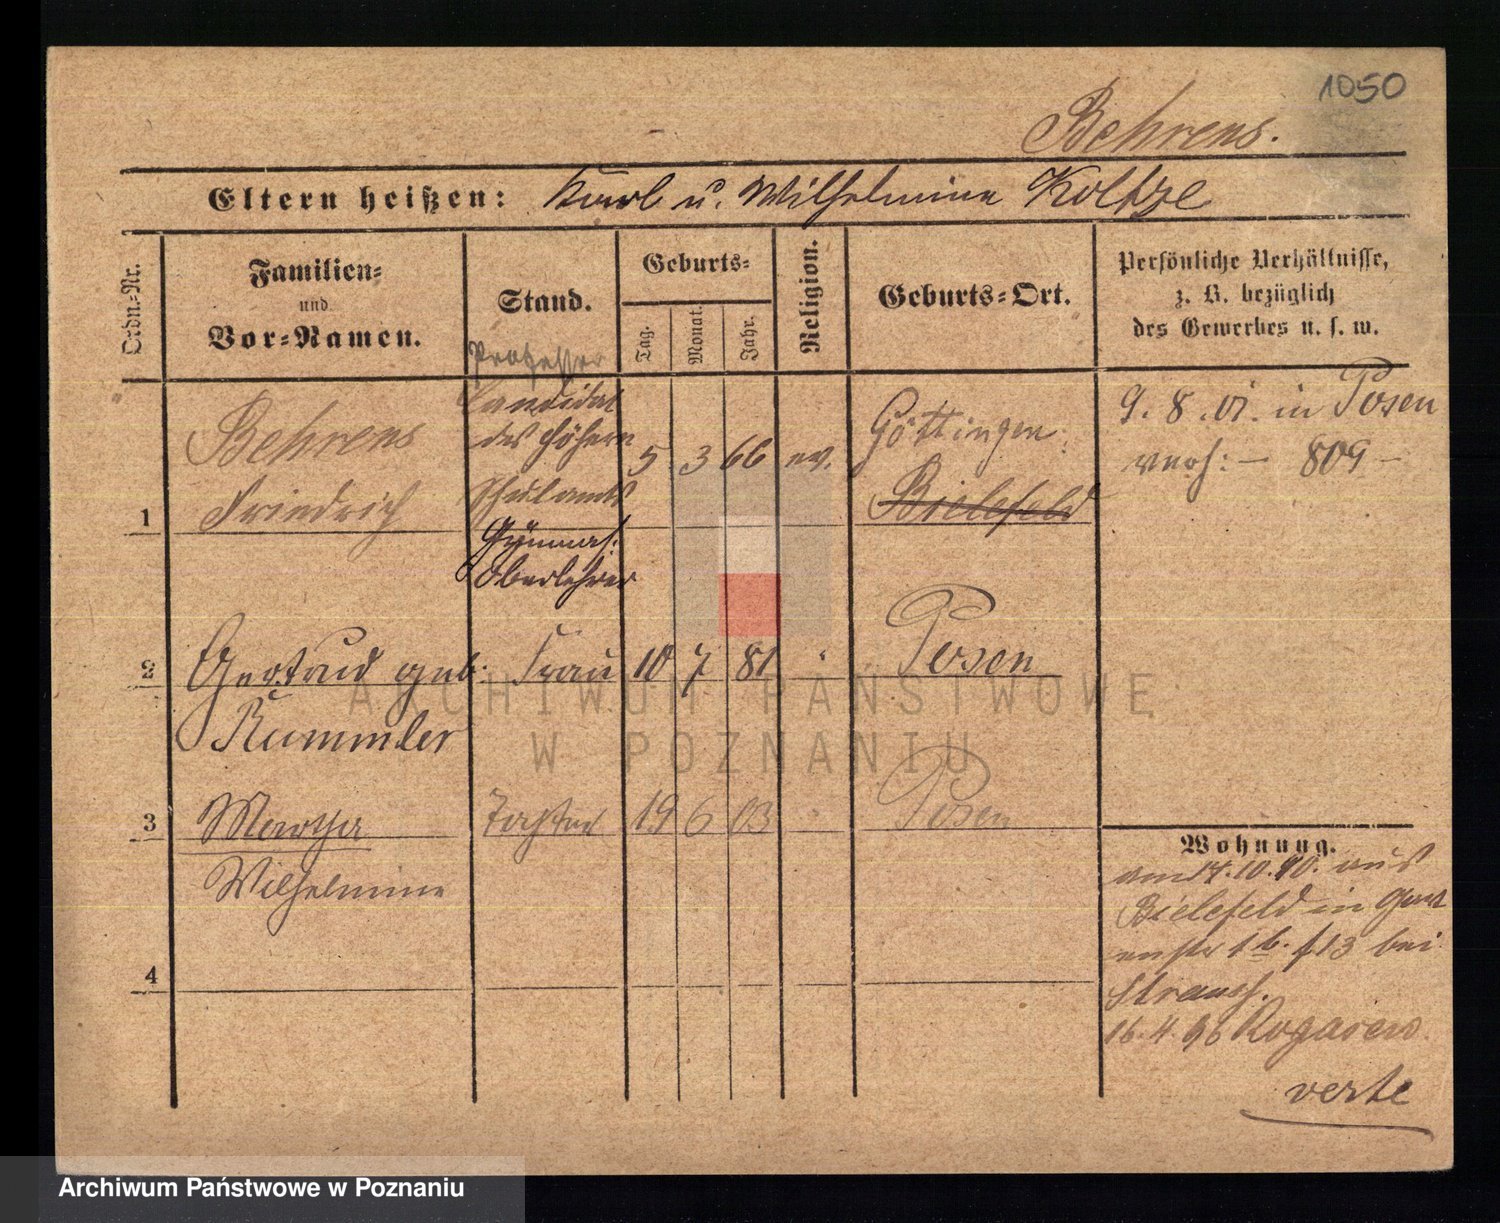 1050
Behrens.
Eltern heißen: Karl u. Wilhelmine Koltze
Ordn.-Nr.
Familien-
und
Vor-Namen.
Stand.
Geburts-
Tag.
Monat.
Jahr.
Religion.
Geburts-Ort.
Persönliche Verhältnisse,
z. B. bezüglich
des Gewerbes u. s. w.
Professor
Candidat
des höhern
Schulamts
Gymnas.
Oberlehrer
1
Behrens
Friedrich
5 3 66 ev.
Göttingen
Bielefeld
9. 8. 01. in Posen
verh: — 809 —
2 Gertrud geb. Frau 10 7 81 " Posen
Rummler
3 Martha Tochter 19 6 03 " Posen
Wilhelmine
4
Wohnung.
am 14.10.90. aus
Bielefeld in
13 bei
16.4.96
verte
ARCHIWUM PAŃSTWOWE
W POZNANIU
Archiwum Państwowe w Poznaniu